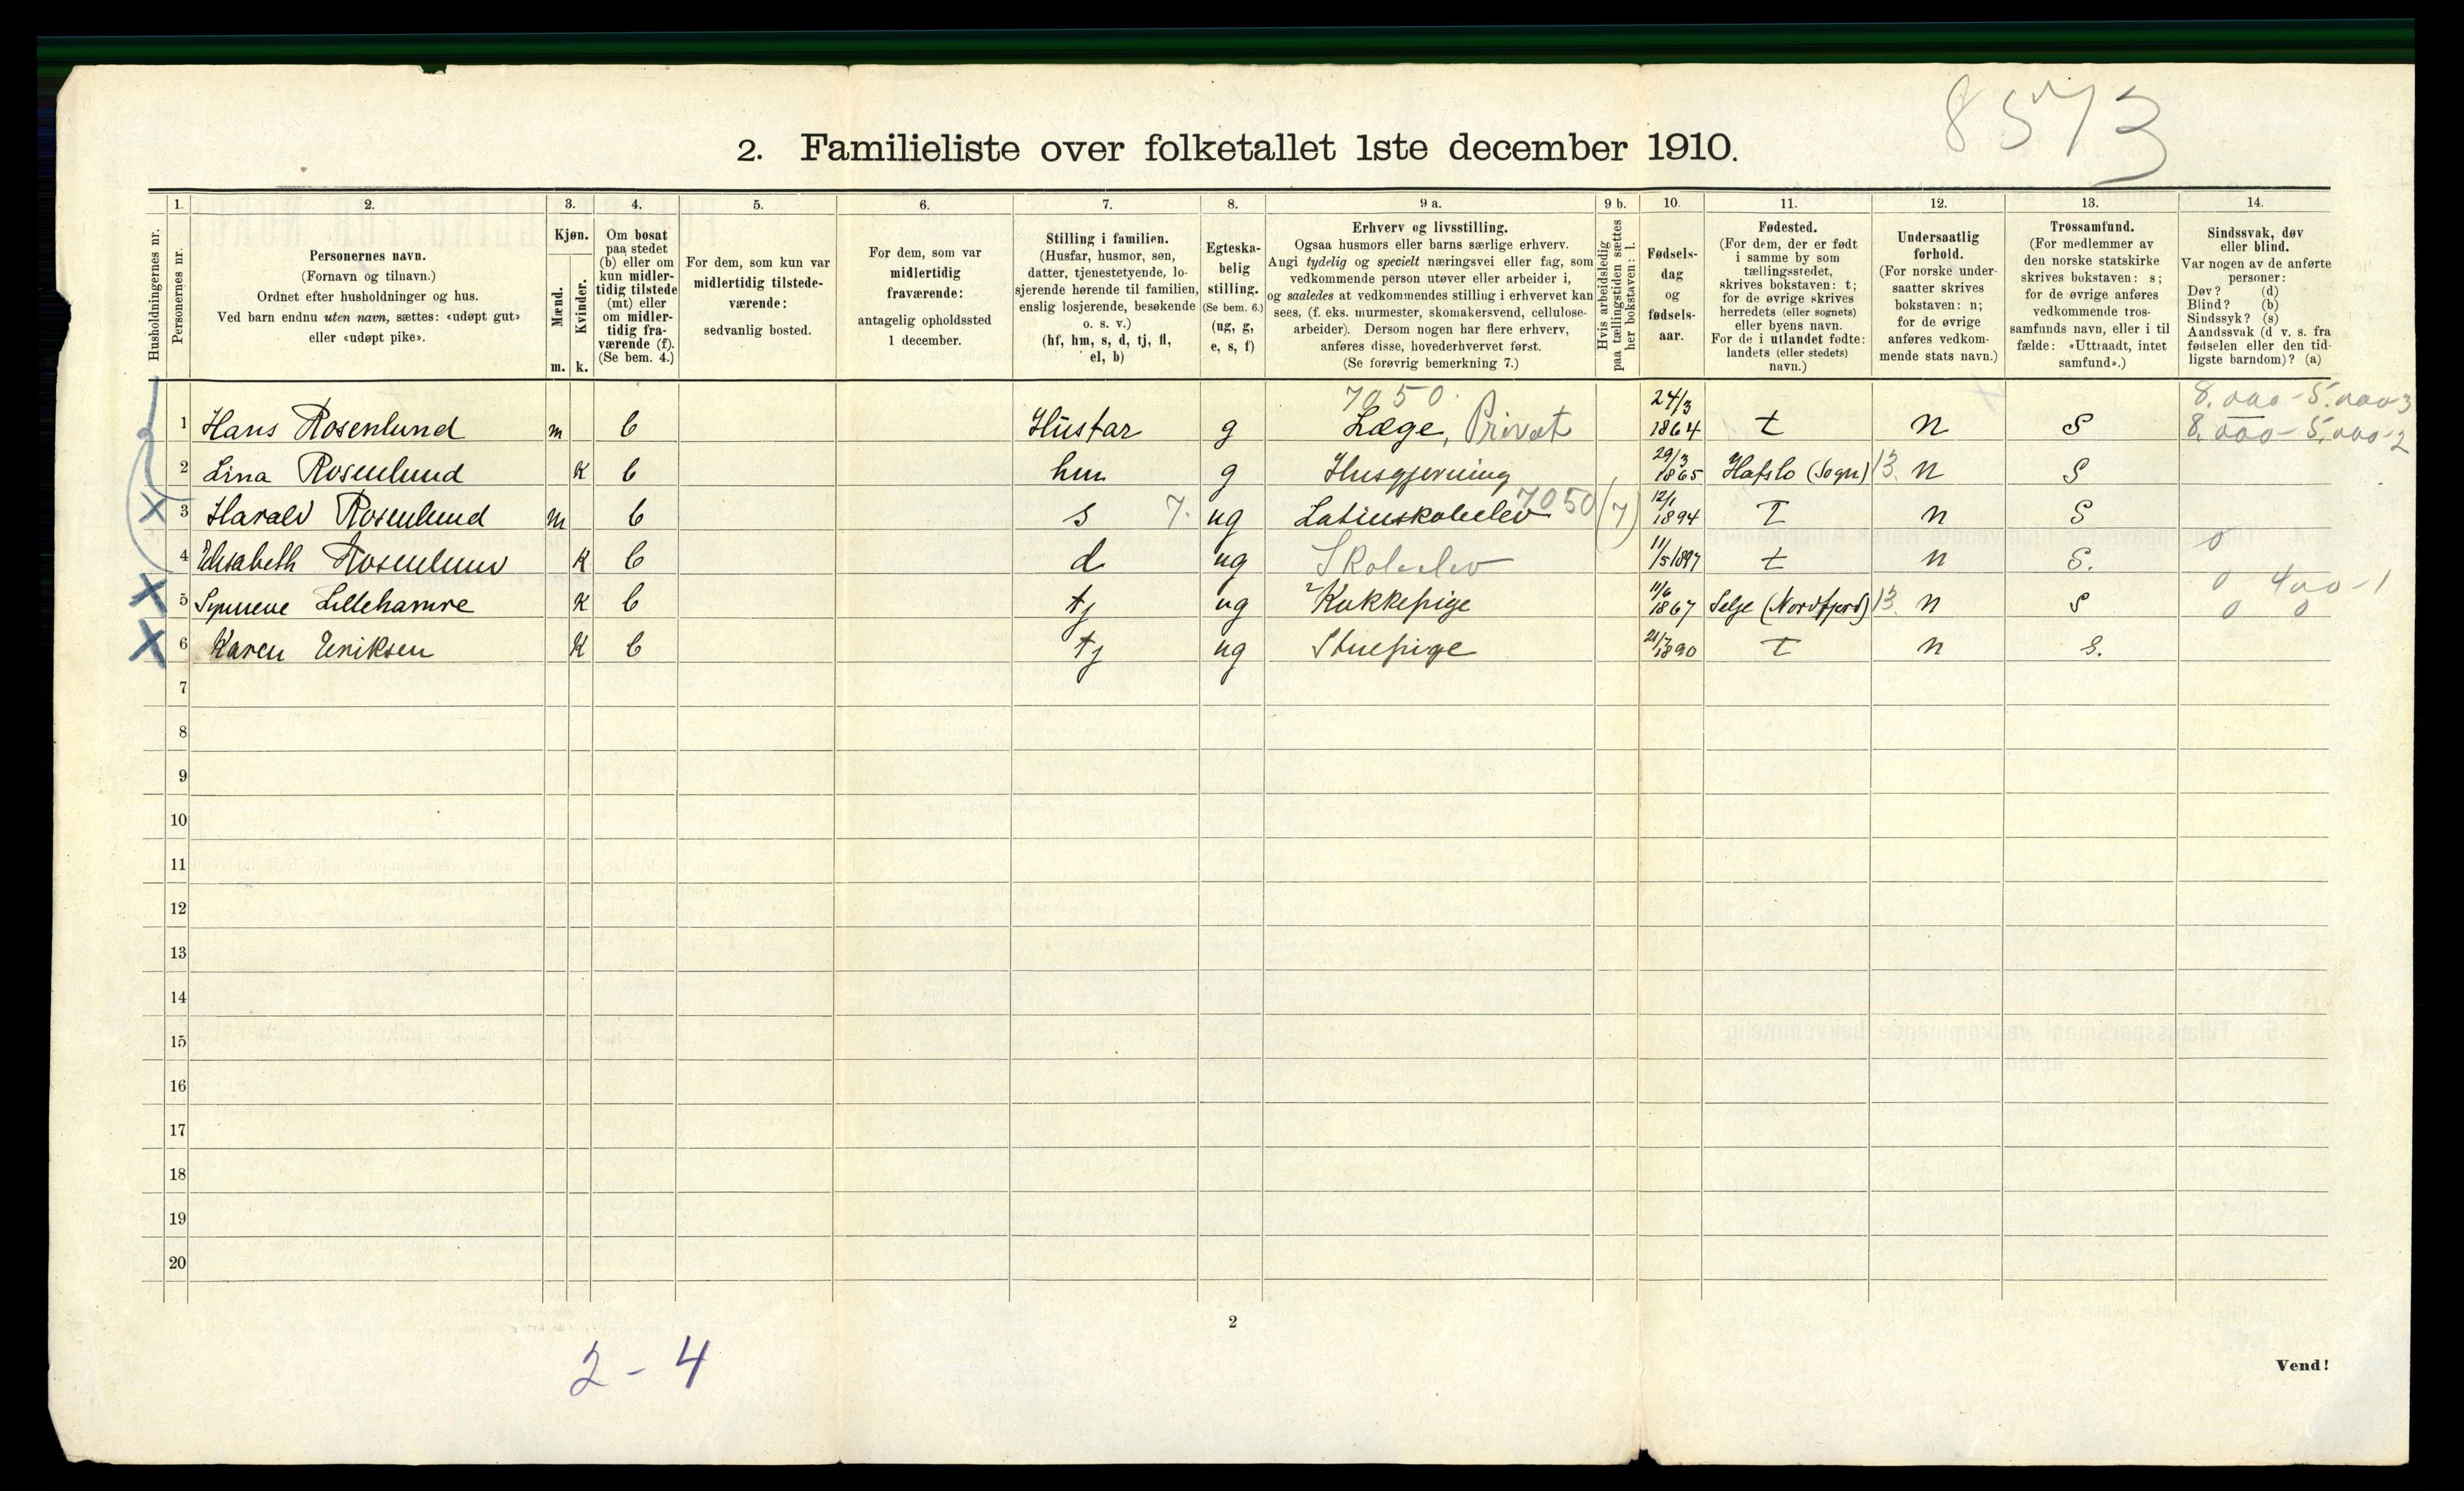 8573
2. Familieliste over folketallet 1ste december 1910.
Husholdningernes nr.
1.
Personernes nr.
2.
Personernes navn.
(Fornavn og tilnavn.)
Ordnet efter husholdninger og hus.
Ved barn endnu uten navn, sættes: «udøpt gut»
eller «udøpt pike».
3.
Kjøn.
Mænd.
Kvinder.
m. k.
4.
Om bosat
paa stedet
(b) eller om
kun midler-
tidig tilstede
(mt) eller
om midler-
tidig fra-
værende (f).
(Se bem. 4.)
5.
For dem, som kun var
midlertidig tilstede-
værende:
sedvanlig bosted.
6.
For dem, som var
midlertidig
fraværende:
antagelig opholdssted
1 december.
7.
Stilling i familien.
(Husfar, husmor, søn,
datter, tjenestetyende, lo-
sjerende hørende til familien,
enslig losjerende, besøkende
o. s. v.)
(hf, hm, s, d, tj, fl,
el, b)
8.
Egteska-
belig
stilling.
(Se bem. 6.)
(ug, g,
e, s, f)
9 a.
Erhverv og livsstilling.
Ogsaa husmors eller barns særlige erhverv.
Angi tydelig og specielt næringsvei eller fag, som
vedkommende person utøver eller arbeider i,
og saaledes at vedkommendes stilling i erhvervet kan
sees, (f. eks. murmester, skomakersvend, cellulose-
arbeider). Dersom nogen har flere erhverv,
anføres disse, hovederhvervet først.
(Se forøvrig bemerkning 7.)
9 b.
Hvis arbeidsledig
paa tællingstiden sættes
her bokstaven: l.
10.
Fødsels-
dag
og
fødsels-
aar.
11.
Fødested.
(For dem, der er født
i samme by som
tællingsstedet,
skrives bokstaven: t;
for de øvrige skrives
herredets (eller sognets)
eller byens navn.
For de i utlandet fødte:
landets (eller stedets)
navn.)
12.
Undersaatlig
forhold.
(For norske under-
saatter skrives
bokstaven: n;
for de øvrige
anføres vedkom-
mende stats navn.)
13.
Trossamfund.
(For medlemmer av
den norske statskirke
skrives bokstaven: s;
for de øvrige anføres
vedkommende tros-
samfunds navn, eller i til
fælde: «Uttraadt, intet
samfund».)
14.
Sindssvak, døv
eller blind.
Var nogen av de anførte
personer:
Døv? (d)
Blind? (b)
Sindssyk? (s)
Aandssvak (d v. s. fra
fødselen eller den tid-
ligste barndom)? (a)
7050. 8.000-5.000-3
1 Hans Rosenlund m b Husfar g Læge, Privat 24/3 1864 t n S 8.000-5.000-2
2 Lina Rosenlund K b hm g Husgjerning 29/3 1865 Hafslo (Sogn) 13. n S
X 3 Harald Rosenlund m b s 7. ug Latinskoleelev 7050 (7) 12/1 1894 T n S
4 Elisabeth Rosenlund K b d ug Skoleelev 11/5 1897 t n S. 0
X 5 Synneve Lillehamre K b tj ug Kokkepige 11/6 1867 Selje (Nordfjord) 13. n S 0 400-1
0 0
X 6 Karen Eriksen K b tj ug Stuepige 21/7 1890 T n S.
7
8
9
10
11
12
13
14
15
16
17
18
19
20
2
2-4
Vend!